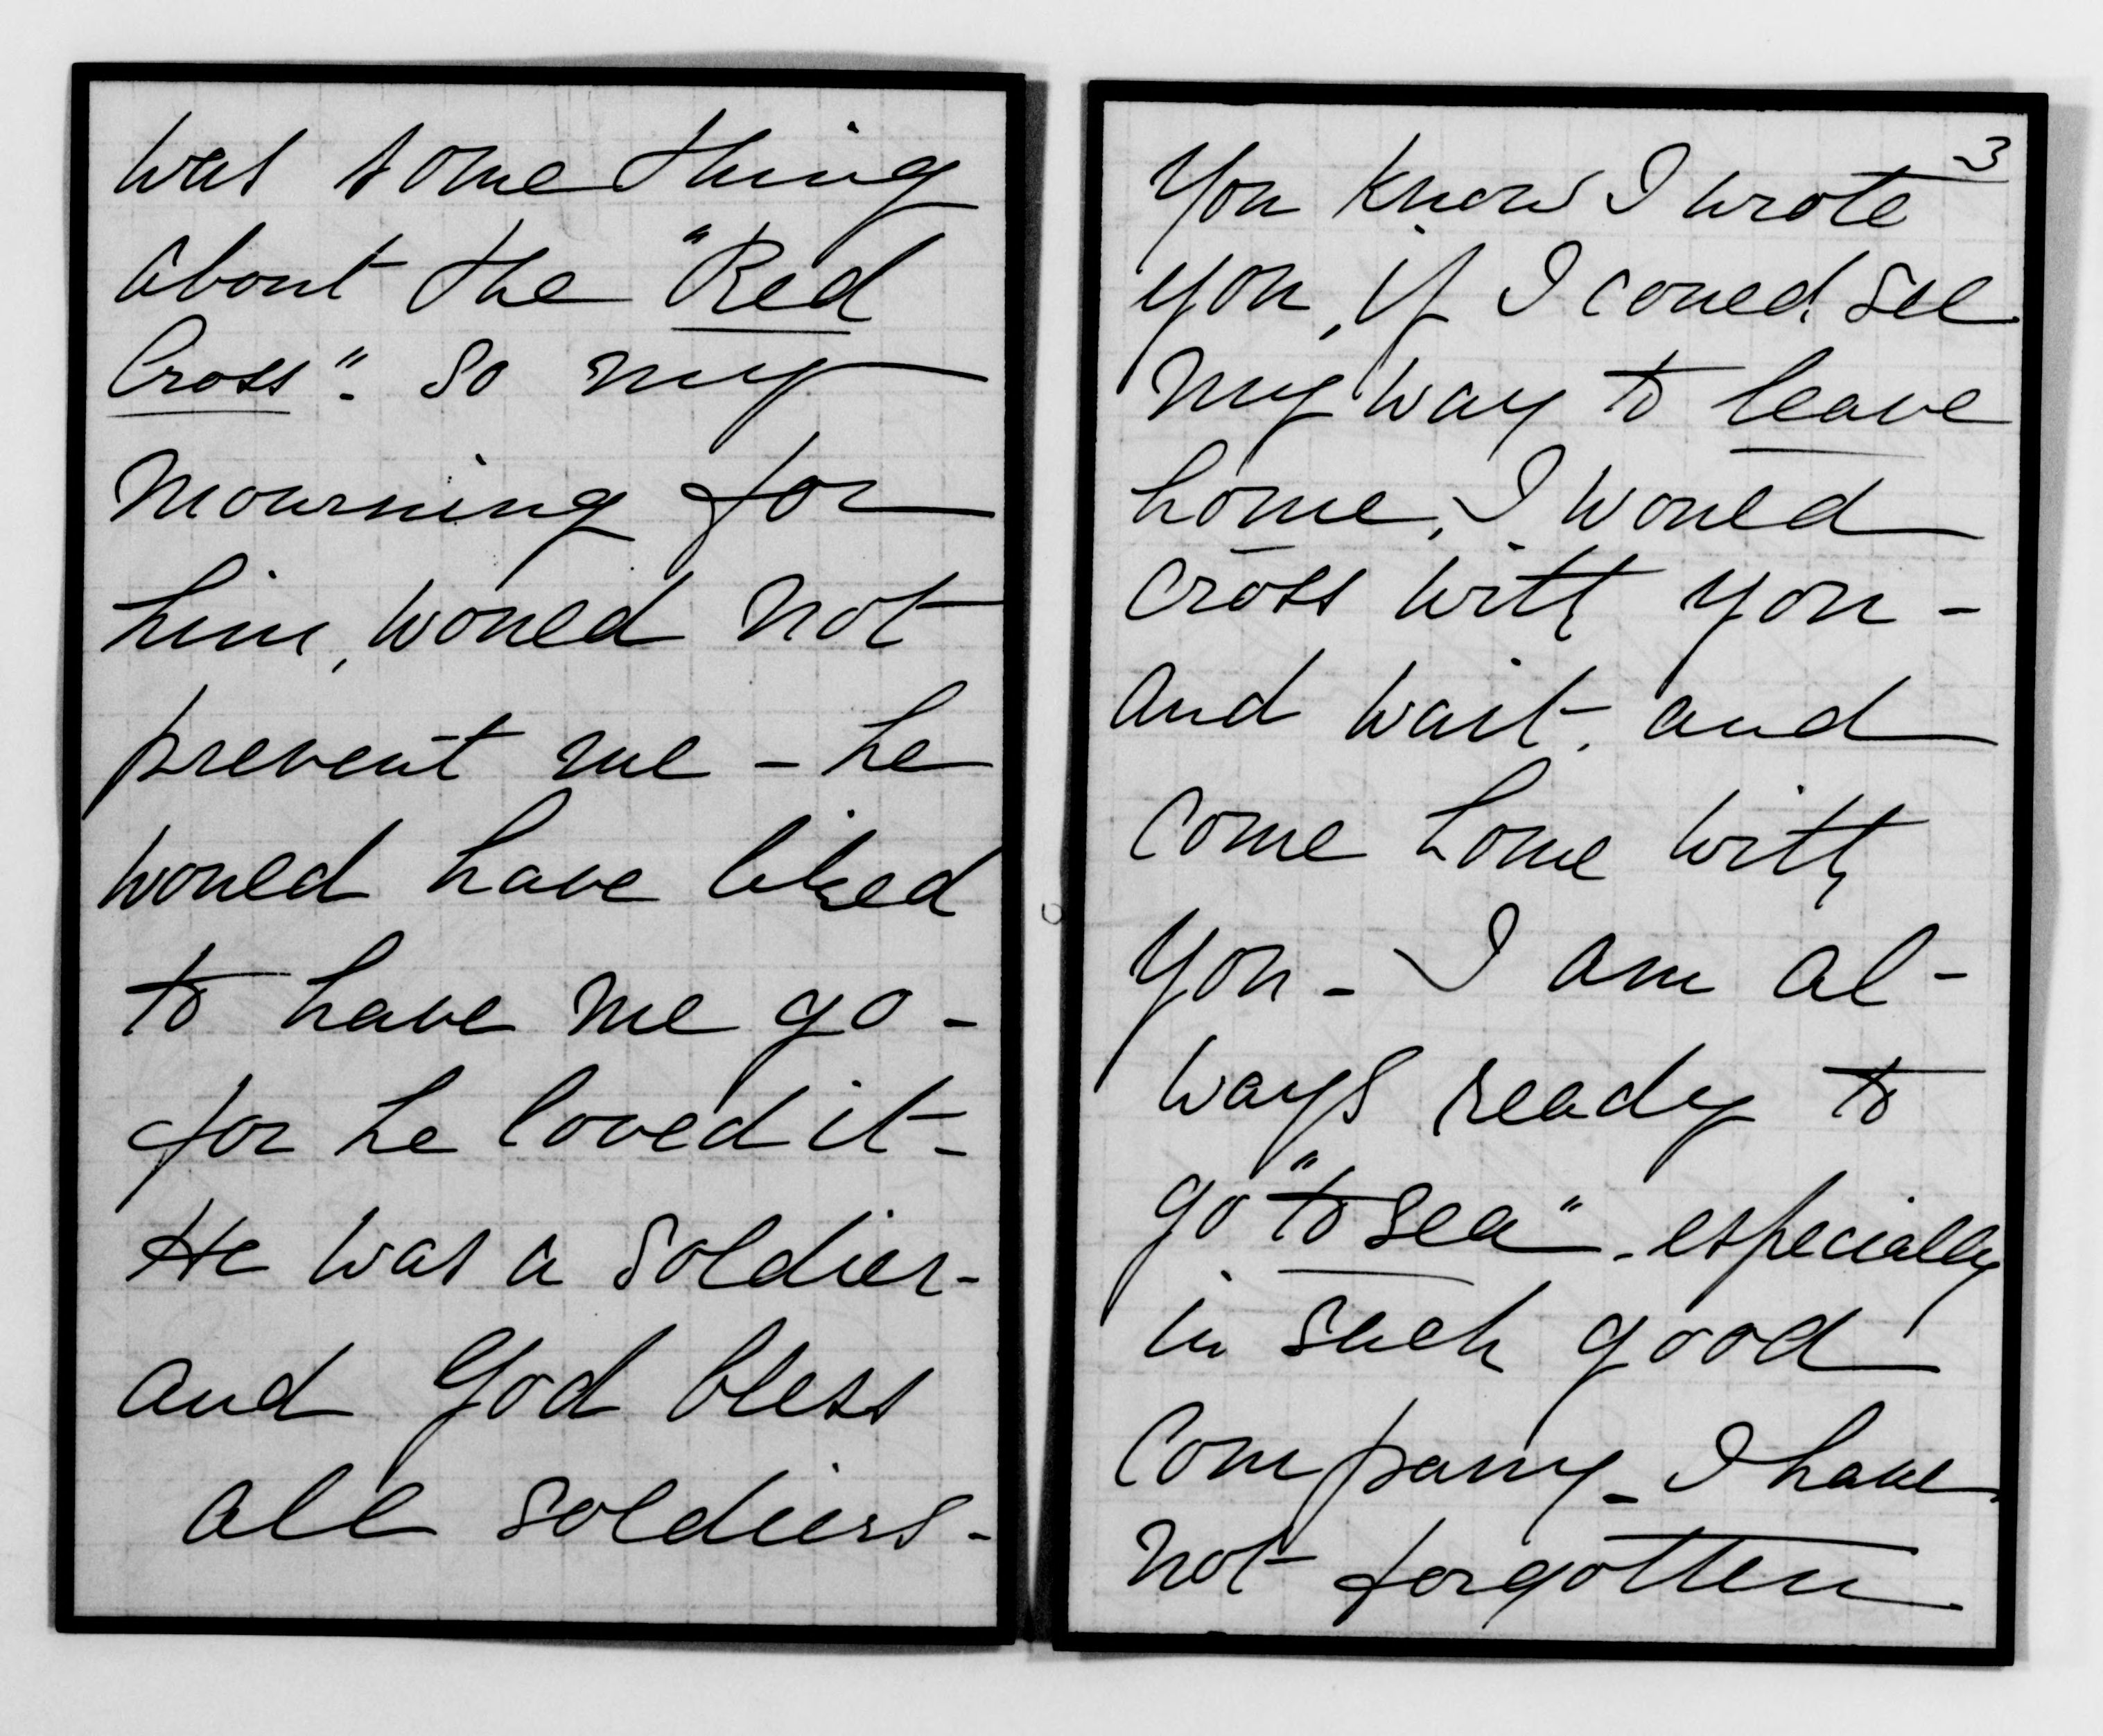 was some thing
about the "Red
Cross". So my
mourning for
him, would not
prevent me - he
would have liked
to have me go -
for he loved it -
He was a soldier -
and God bless
all soldiers -
3
You know I wrote
you, if I could see
my way to leave
home, I would
cross with you -
and wait, and
come home with
you - I am al-
ways ready to
go "to sea" - especially
in such good
company - I have
not forgotten